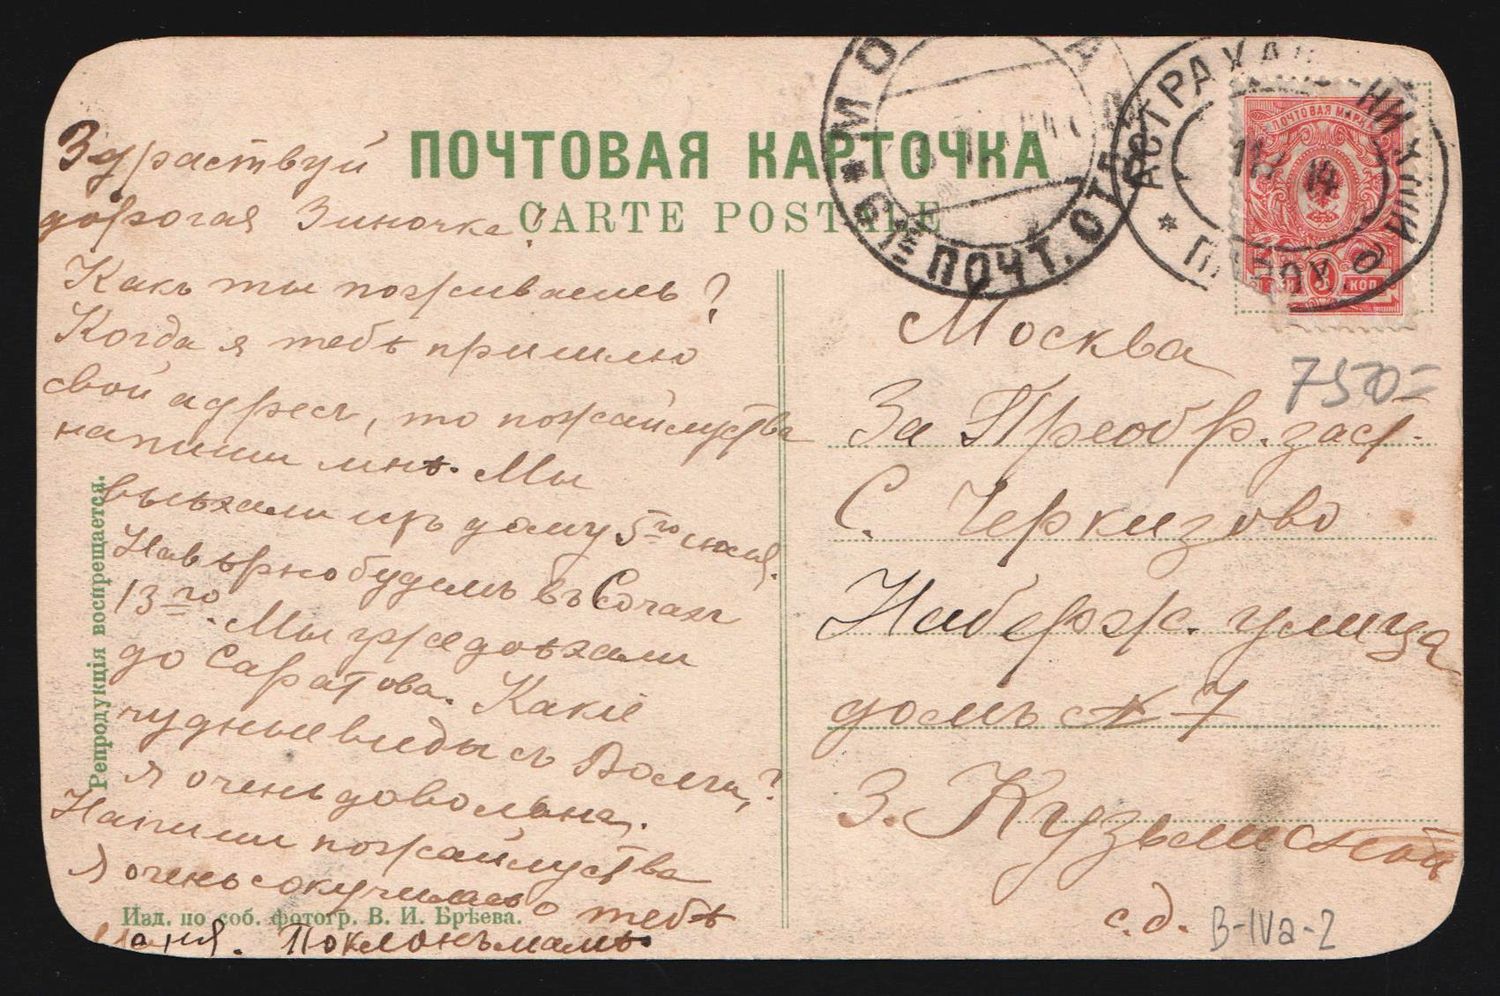 ПОЧТОВАЯ КАРТОЧКА
CARTE POSTALE
Здраствуй
дорогая Зиночка!
Какъ ты поживаешь?
Когда я тебѣ пришлю
свой адресъ, то пожайлуства
напиши мнѣ. Мы
выѣхали изъ дому 5го июля.
Навѣрно будемъ въ Сочахъ
13го. Мы уже доѣхали
до Саратова. Какіе
чудные виды съ Волги,?
Я очень довольна.
Напиши пожайлуства
Я очень соскучилась о тебѣ
Маня. Поклонъ мамѣ
Репродукція воспрещается.
Изд. по соб. фотогр. В. И. Брѣева.
МО А
* 61 ПОЧТ. ОТД.
АСТРАХАН НИЖНІЙ
* ПАРОХ
14
ПОЧТОВАЯ МАРКА
3 КОП
7500=
Москва
За Преобр. заст.
С. Черкизово
Набереж. улица
домъ № 7
З. Кузьминской
с.д.
B-IVa-2